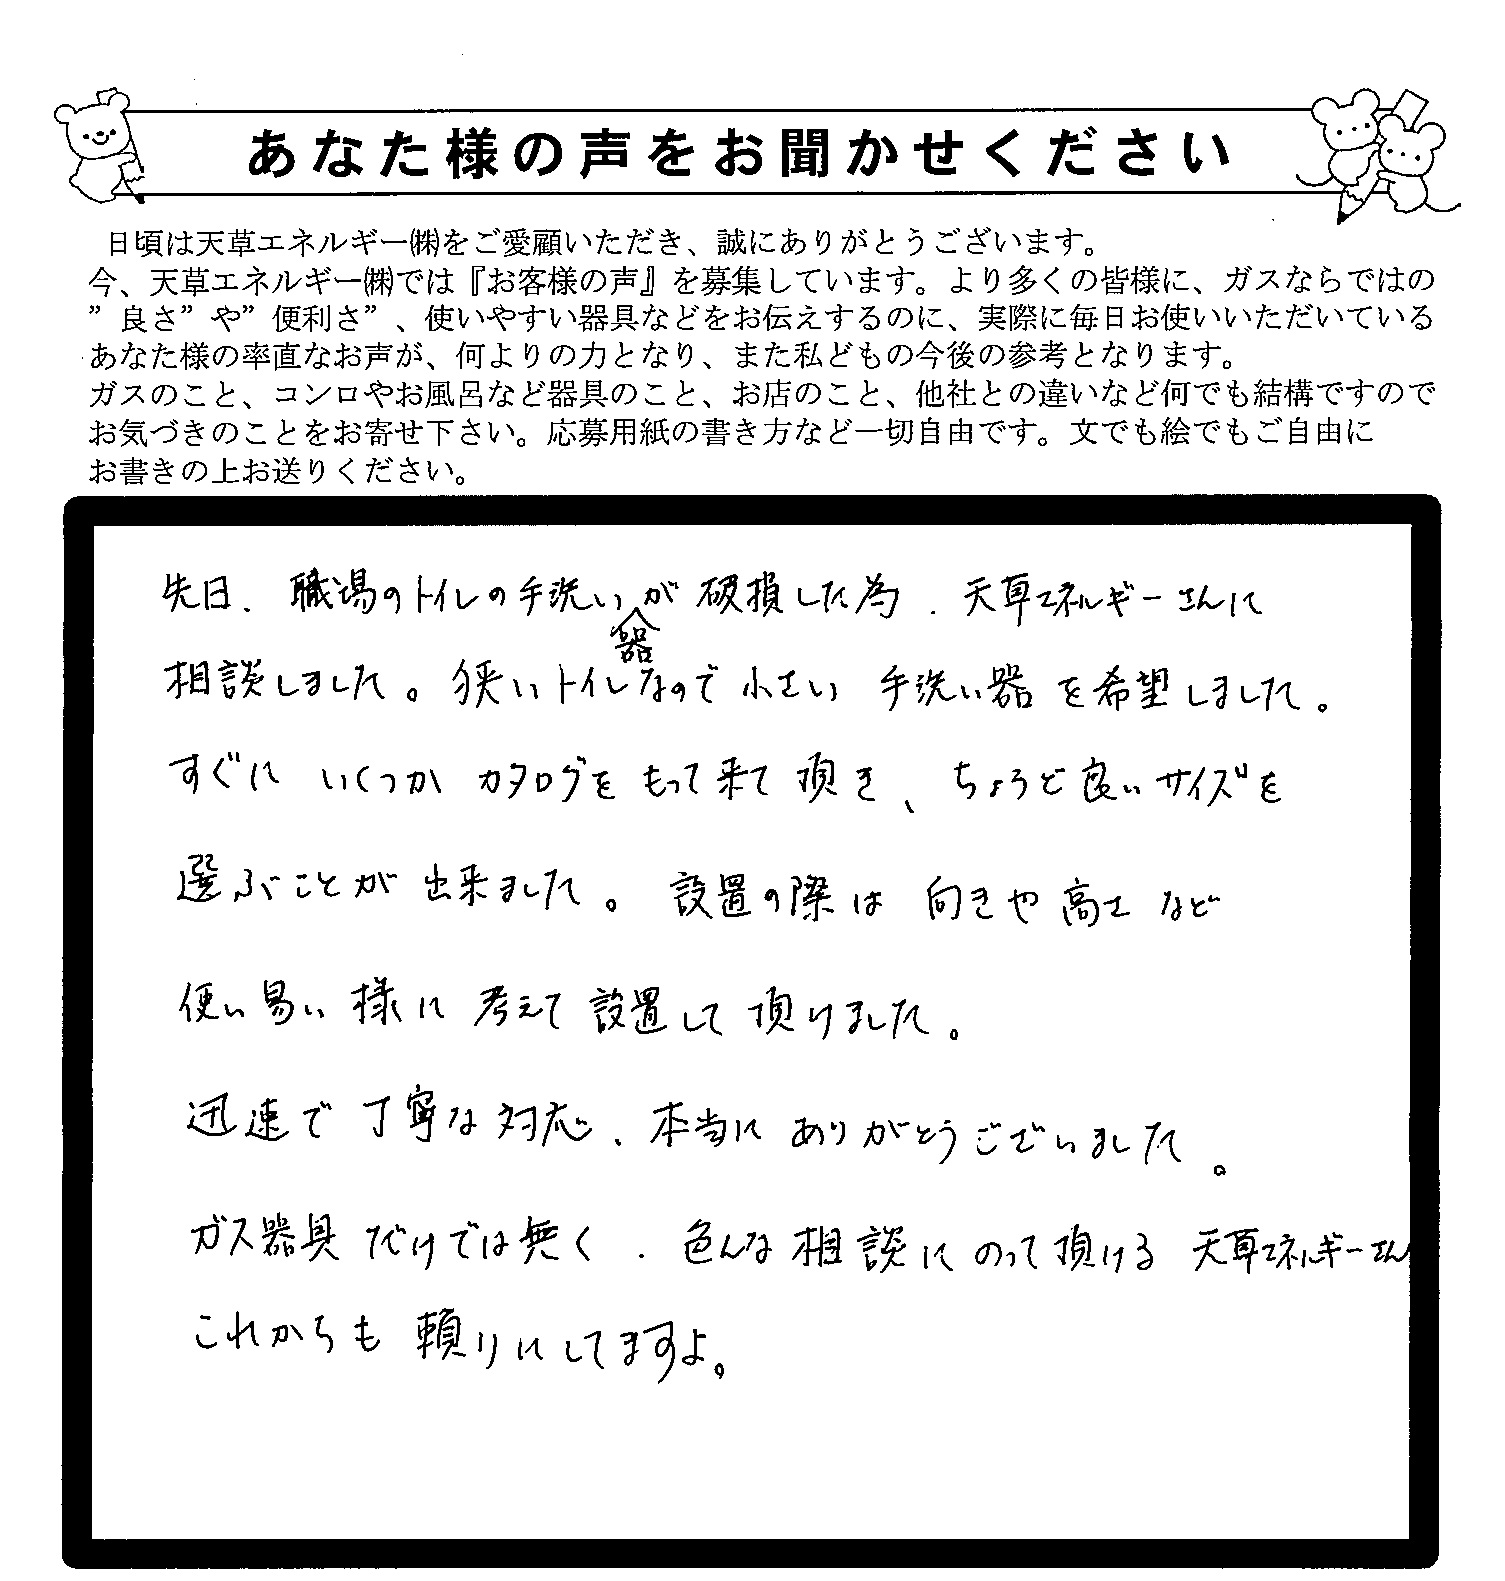 あなた様の声をお聞かせください
日頃は天草エネルギー㈱をご愛顧いただき、誠にありがとうございます。
今、天草エネルギー㈱では『お客様の声』を募集しています。より多くの皆様に、ガスならではの
”良さ”や”便利さ”、使いやすい器具などをお伝えするのに、実際に毎日お使いいただいている
あなた様の率直なお声が、何よりの力となり、また私どもの今後の参考となります。
ガスのこと、コンロやお風呂など器具のこと、お店のこと、他社との違いなど何でも結構ですので
お気づきのことをお寄せ下さい。応募用紙の書き方など一切自由です。文でも絵でもご自由に
お書きの上お送りください。
先日、職場のトイレの手洗い器が破損した為、天草エネルギーさんに
相談しました。狭いトイレなので小さい手洗い器を希望しました。
すぐにいくつかカタログをもって来て頂き、ちょうど良いサイズを
選ぶことが出来ました。設置の際は向きや高さなど
使い易い様に考えて設置して頂けました。
迅速で丁寧な対応、本当にありがとうございました。
ガス器具だけでは無く、色んな相談にのって頂ける天草エネルギーさん
これからも頼りにしてますよ。